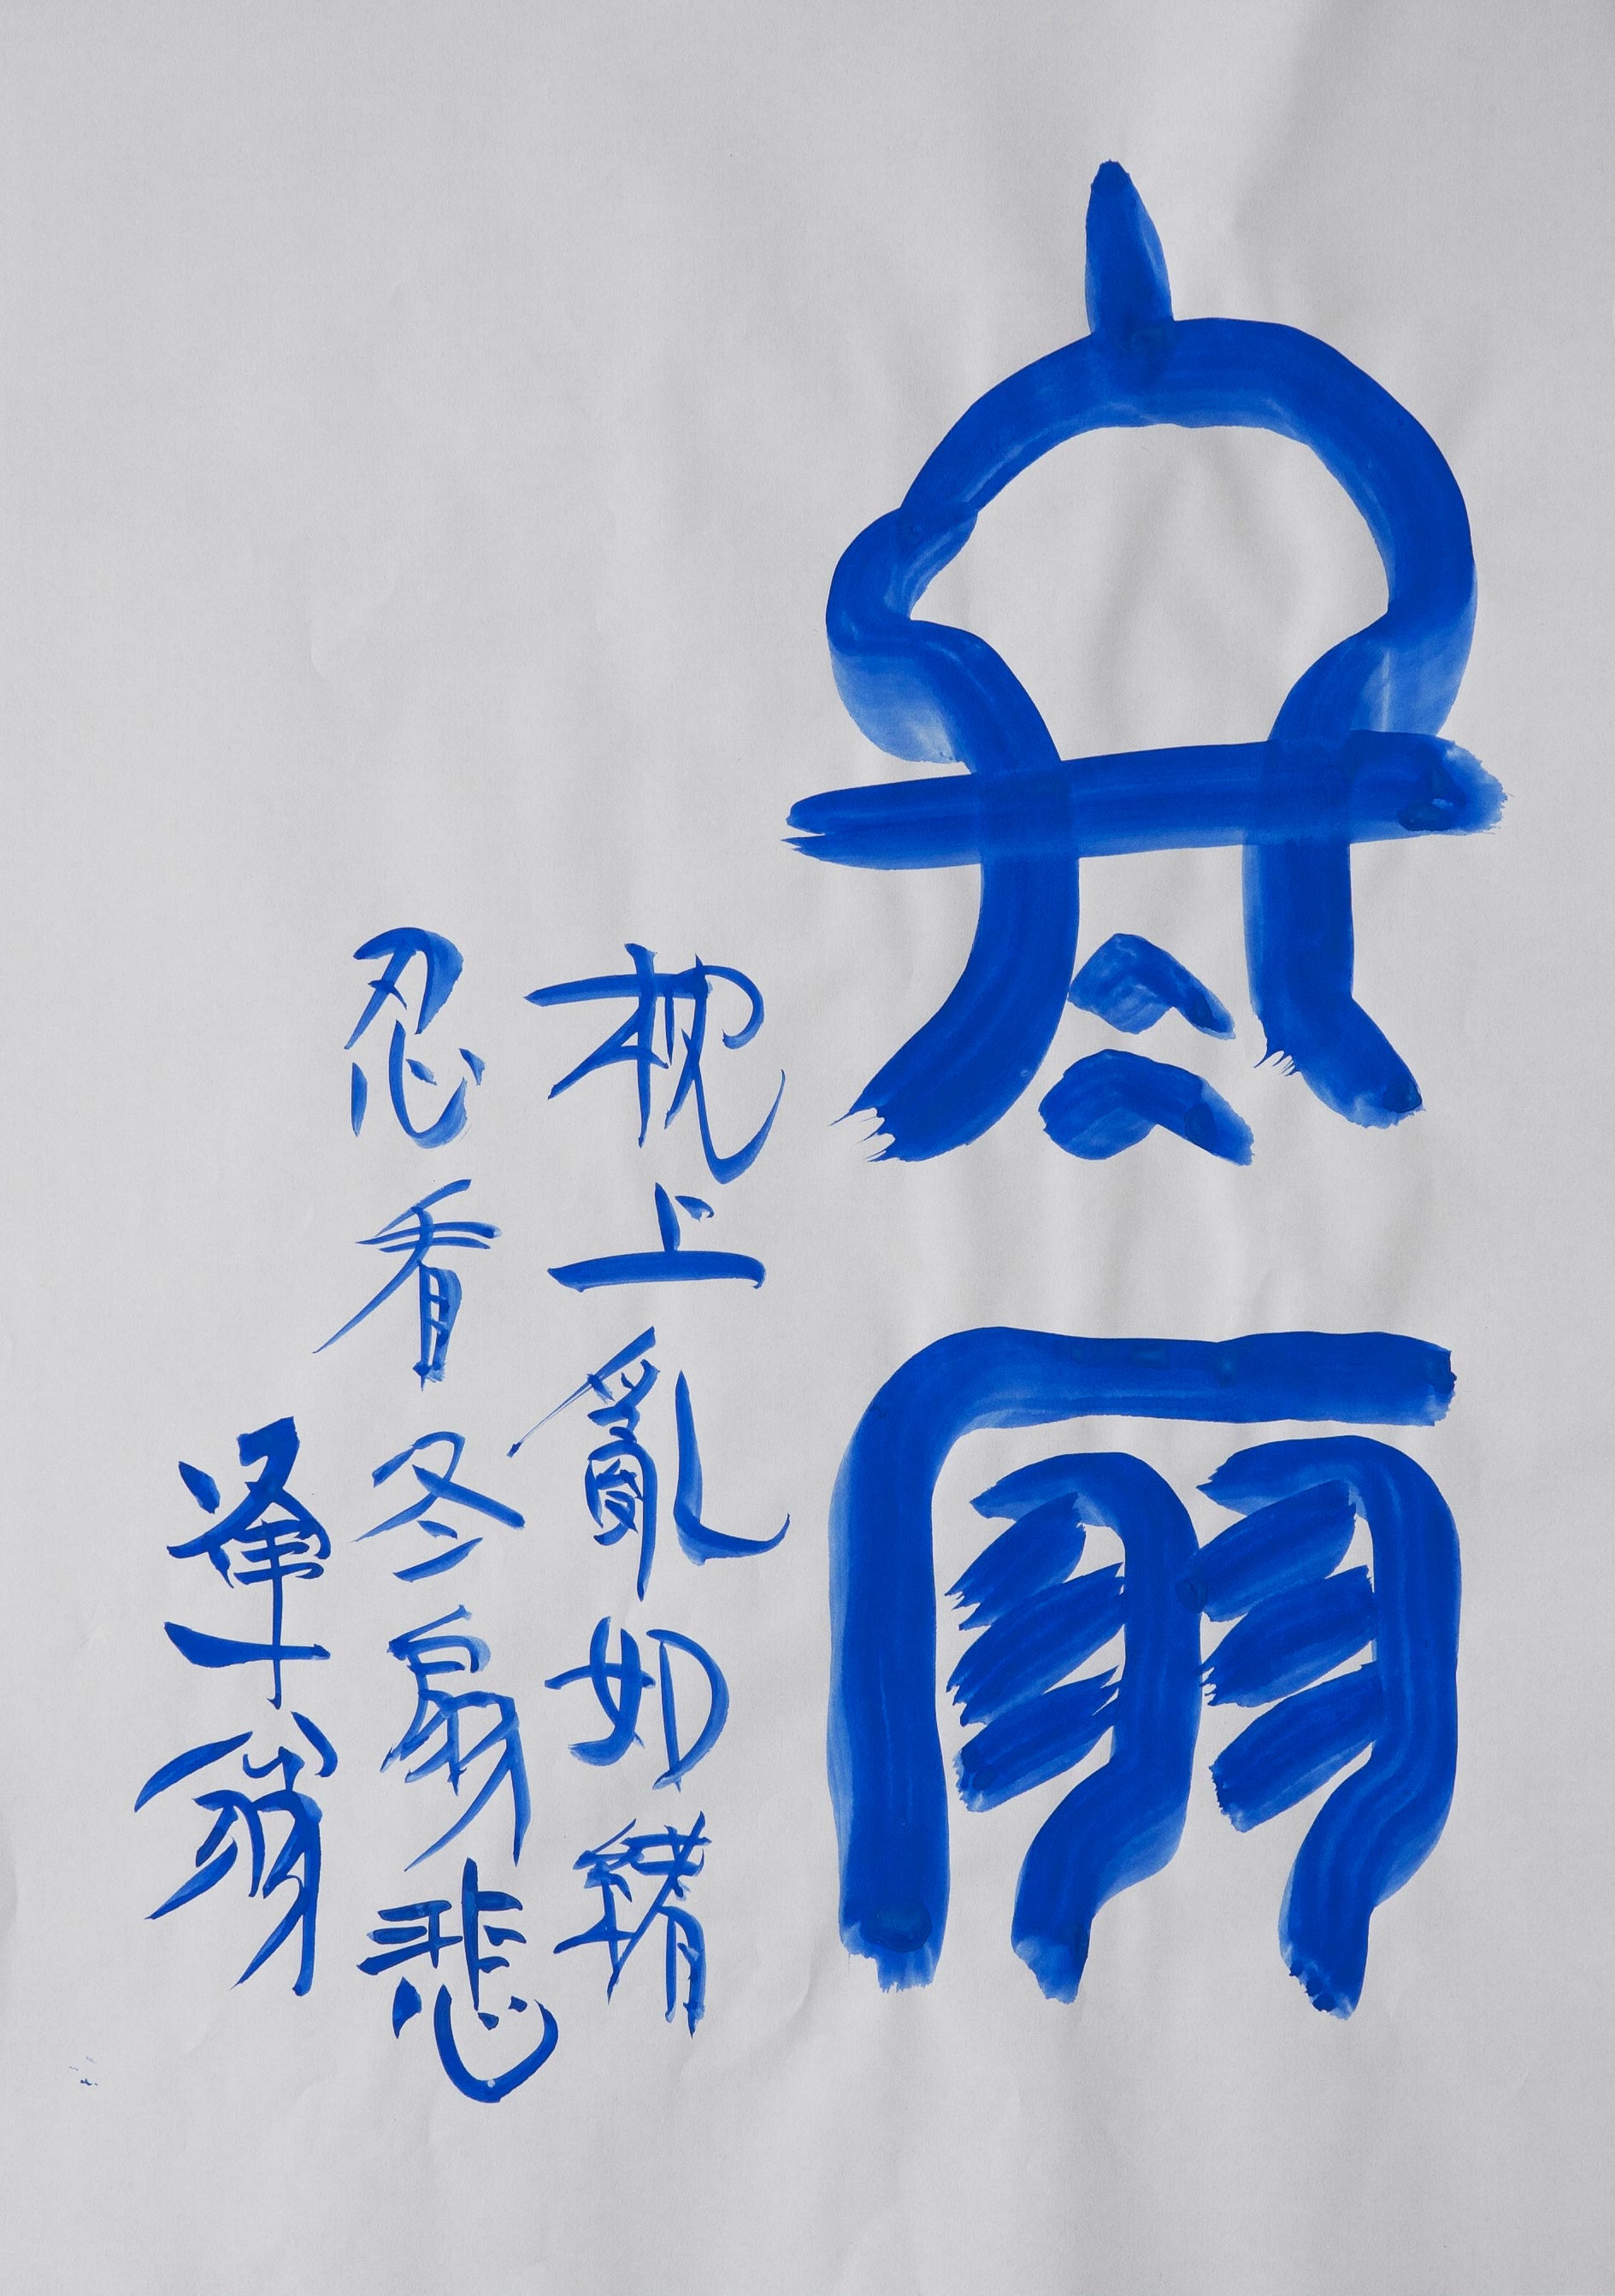 冬扇
枕上亂如緒
忍看冬扇悲
夆十翁